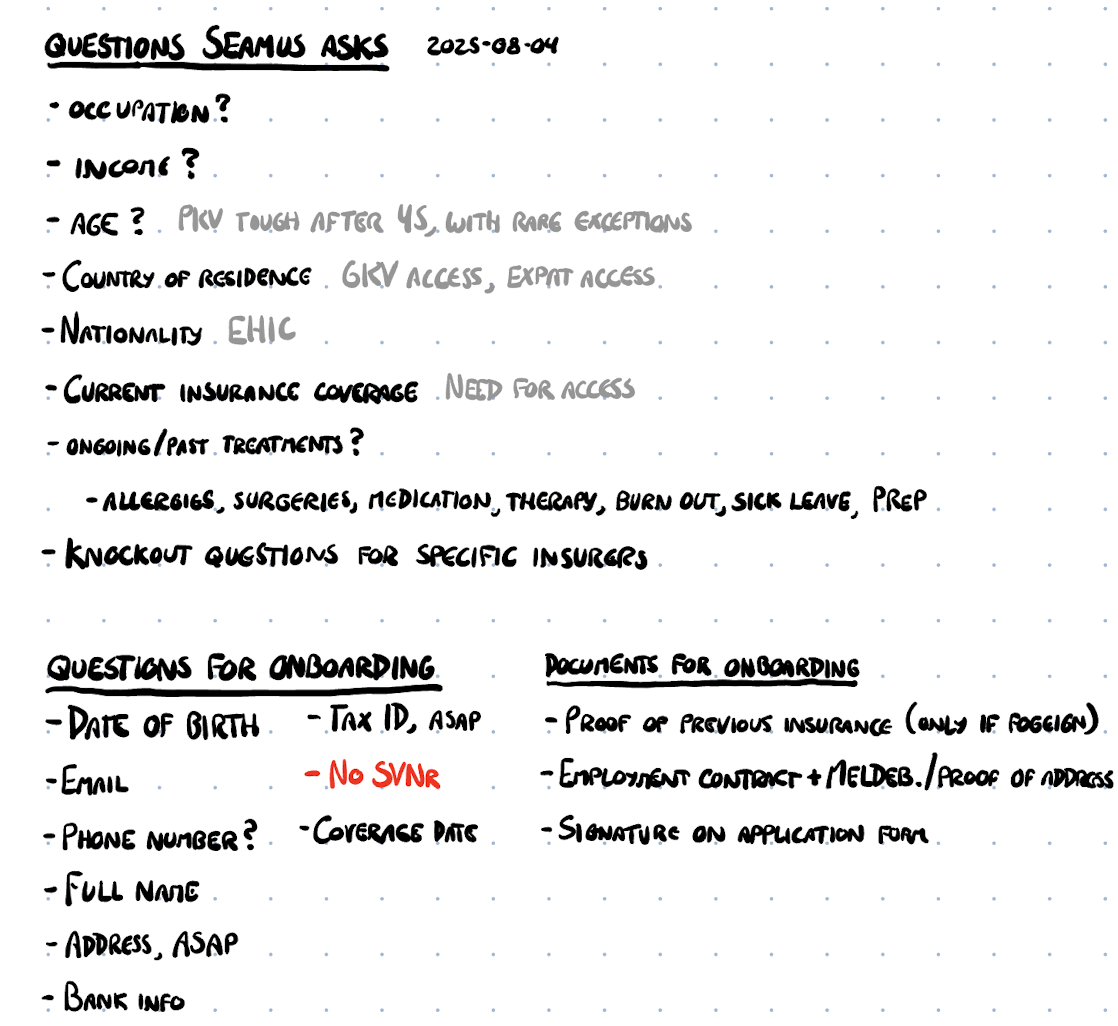 QUESTIONS SEAMUS ASKS 2025-08-04
- OCCUPATION?
- INCOME?
- AGE? PKV TOUGH AFTER 45, WITH RARE EXCEPTIONS
- COUNTRY OF RESIDENCE GKV ACCESS, EXPAT ACCESS
- NATIONALITY EHIC
- CURRENT INSURANCE COVERAGE NEED FOR ACCESS
- ONGOING/PAST TREATMENTS?
- ALLERGIES, SURGERIES, MEDICATION, THERAPY, BURN OUT, SICK LEAVE, PREP
- KNOCKOUT QUESTIONS FOR SPECIFIC INSURERS
QUESTIONS FOR ONBOARDING
- DATE OF BIRTH
- EMAIL
- PHONE NUMBER?
- FULL NAME
- ADDRESS, ASAP
- BANK INFO
- TAX ID, ASAP
- NO SVNR
- COVERAGE DATE
DOCUMENTS FOR ONBOARDING
- PROOF OF PREVIOUS INSURANCE (ONLY IF FOREIGN)
- EMPLOYMENT CONTRACT + MELDEB./PROOF OF ADDRESS
- SIGNATURE ON APPLICATION FORM